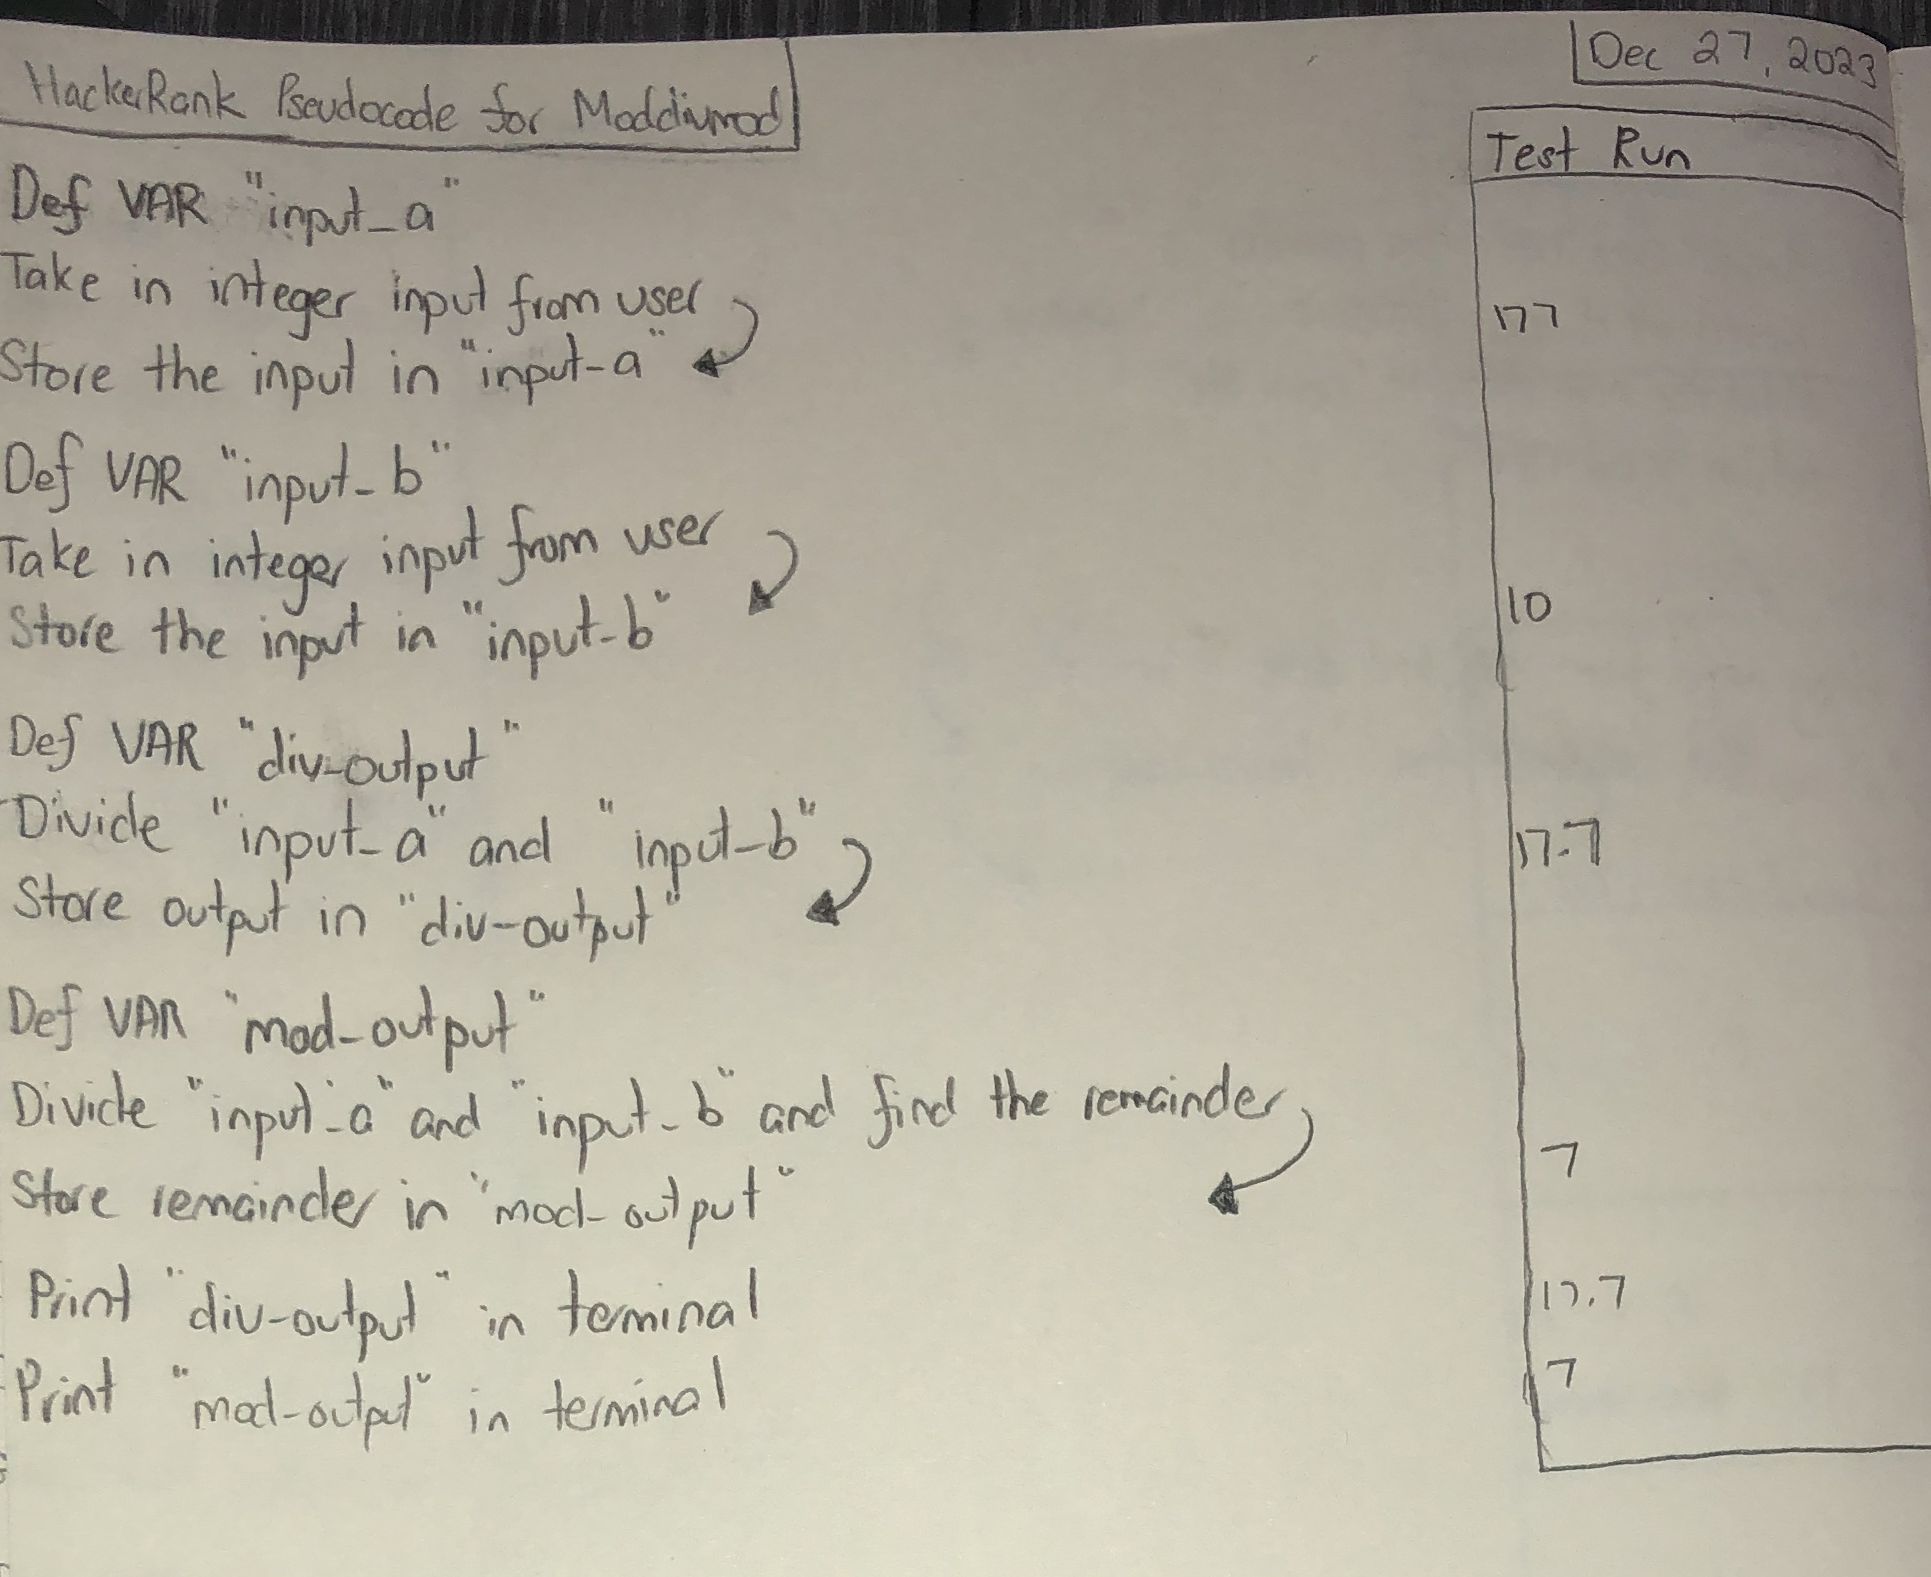 HackerRank Pseudocode for Moddivmod
Dec 27, 2023
Def VAR "input_a"
Take in integer input from user
Store the input in "input-a"
Def VAR "input-b"
Take in integer input from user
Store the input in "input-b"
Def VAR "div-output"
Divide "input-a" and "input-b"
Store output in "div-output"
Def VAR "mod-output"
Divide "input-a" and "input-b" and find the remainder
Store remainder in "mod-output"
Print "div-output" in terminal
Print "mod-output" in terminal
Test Run
177
10
17.7
7
17.7
7